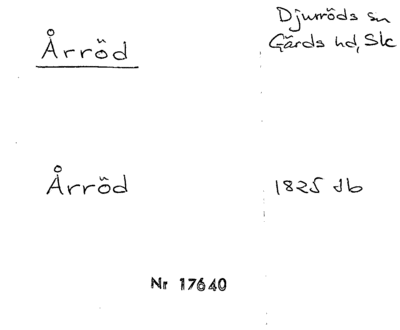 Årröd
Djurröds sn
Gärds hd, Sk
Årröd
1825 db
Nr 17640